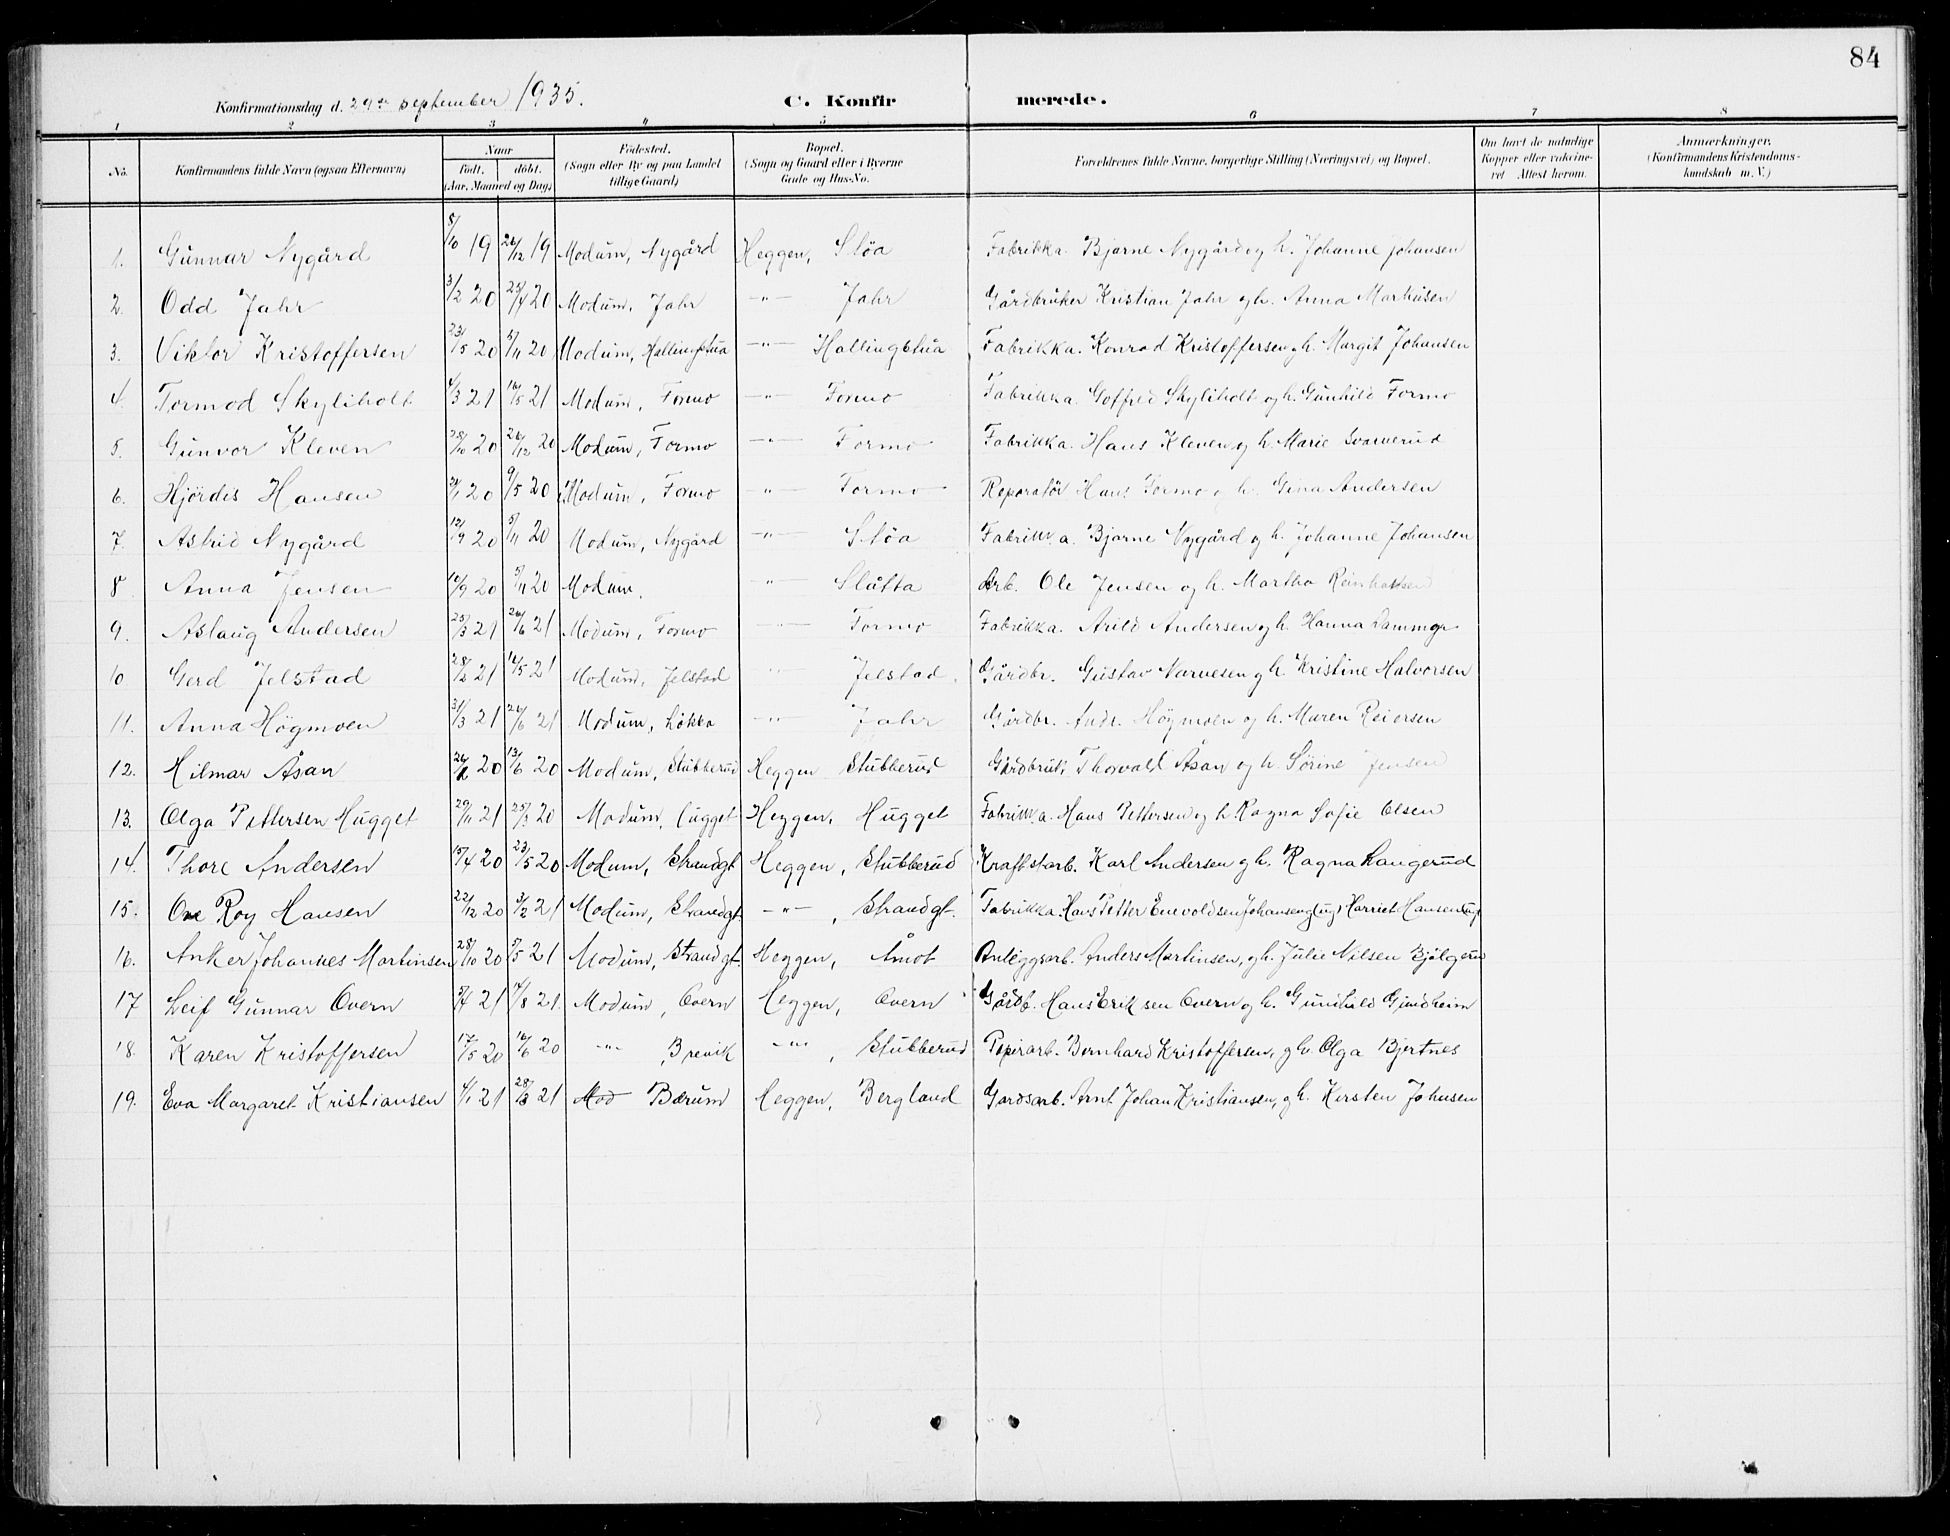 84
Konfirmationsdag d. 29de september 1935. C. Konfirmerede.
1 2 3 4 5 6 7 8
No. Konfirmandens fulde Navn (ogsaa Efternavn) Naar født. døbt. (Aar, Maaned og Dag) Fødested. (Sogn eller By og paa Landet tillige Gaard) Bopæl. (Sogn og Gaard eller i Byerne Gade og Hus-No. Forældrenes fulde Navne, borgerlige Stilling (Næringsvei) og Bopæl. Om havt de naturlige Kopper eller vakcineret Attest herom. Anmærkninger. (Konfirmandens Kristendomskundskab m. V.)
1. Gunnar Nygård 5/10 19 26/12 19 Modum, Nygård Heggen, Støa Fabrikka. Bjarne Nygård og h. Johanne Johansen
2. Odd Jahr 3/2 20 25/4 20 Modum, Jahr -"- Jahr Gårdbruker Kristian Jahr og h. Anna Markusen
3. Viktor Kristoffersen 23/5 20 5/11 20 Modum, Hallingstua -"- Hallingstua Fabrikka. Konrad Kristoffersen og h. Margit Johansen
4. Tormod Skyliholt 4/3 21 16/5 21 Modum, Formo -"- Formo Fabrikka. Goffred Skyliholt og h. Gunhild Formo
5. Gunvor Kleven 28/10 20 26/12 20 Modum, Formo -"- Formo Fabrikka. Hans Kleven og h. Marie Svarverud
6. Hjördis Hansen 24/1 20 9/5 20 Modum, Formo -"- Formo Reparatör Hans Formo og h. Gina Andersen
7. Astrid Nygård 12/9 20 5/11 20 Modum, Nygård -"- Støa Fabrikk.a. Bjarne Nygård og h. Johanne Johansen
8 Anna Jensen 10/9 20 5/11 20 Modum. -"- Slåtta Arb. Ole Jensen og h. Martha
9. Aslaug Andersen 25/3 21 26/6 21 Modum, Formo -"- Formo Fabrikka. Arild Andersen og h. Hanna
10. Gerd Jelstad 28/2 21 16/5 21 Modum, Jelstad -"- Jelstad. Gårdbr. Gustav Narvesen og h. Kristine Halvorsen
11. Anna Högmoen 31/3 21 26/6 21 Modum, Løkka -"- Jahr Gårdbr. Andr. Högmoen og h. Maren Reiersen
12. Hilmar Åsan 20 13/6 20 Modum, Stubberud Heggen Stubberud Gårdbruk. Thorvald Åsan og h. Sörine Jensen
13. Olga Pettersen Hugget 29/11 21 25/3 20 Modum, Hugget Heggen, Hugget Fabrikk.a. Hans Pettersen og h. Ragna Sofie Olsen
14. Thore Andersen 15/4 20 23/5 20 Modum, Strandgt. Heggen, Stubberud Kraftstarb. Karl Andersen og h. Ragna Langerud
15. Ove Roy Hansen 22/12 20 3/2 21 Modum, Strandgt. -"-, Strandgt. Fabrikka. Hans Petter Enevoldsen Johansen Harriet Hansen
16. Anker Johannes Martinsen 28/10 20 5/5 21 Modum, Strandgt. Heggen, Åmot Anleggsarb. Anders Martinsen, og h. Julie Nilsen Bjölgerud
17 Leif Gunnar Overn 5/4 21 14/8 21. Modum, Overn Heggen, Overn Gårdb. Hans Eriksen Overn og h. Gunhild Gundheim
18. Karen Kristoffersen 17/5 20 16/6 20 -"-, Brevik -"-, Stubberud Papirarb. Bernhard Kristoffersen, og h. Olga Bjertnes
19. Eva Margaret Kristiansen 4/1 21 28/3 21 Mod Bærum Heggen, Bergland Gardsarb. Arnt Johan Kristiansen, og h. Kirsten Johnsen